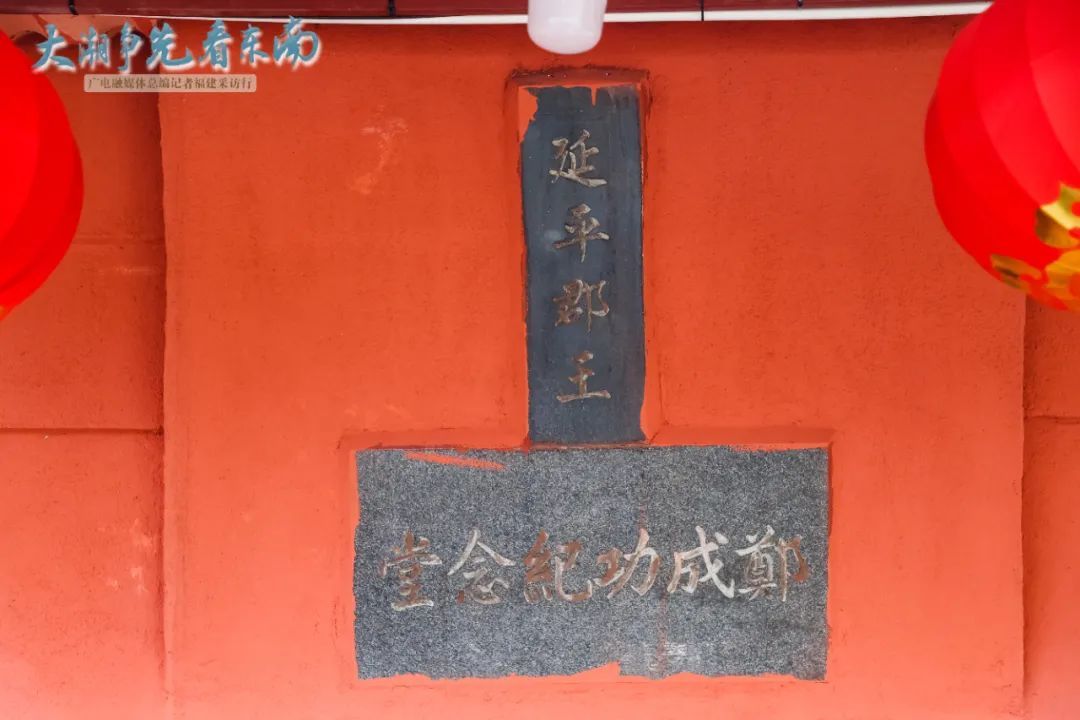 大湘争先看东南
广电融媒体总编记者福建采访行
延平郡王
鄭成功紀念堂